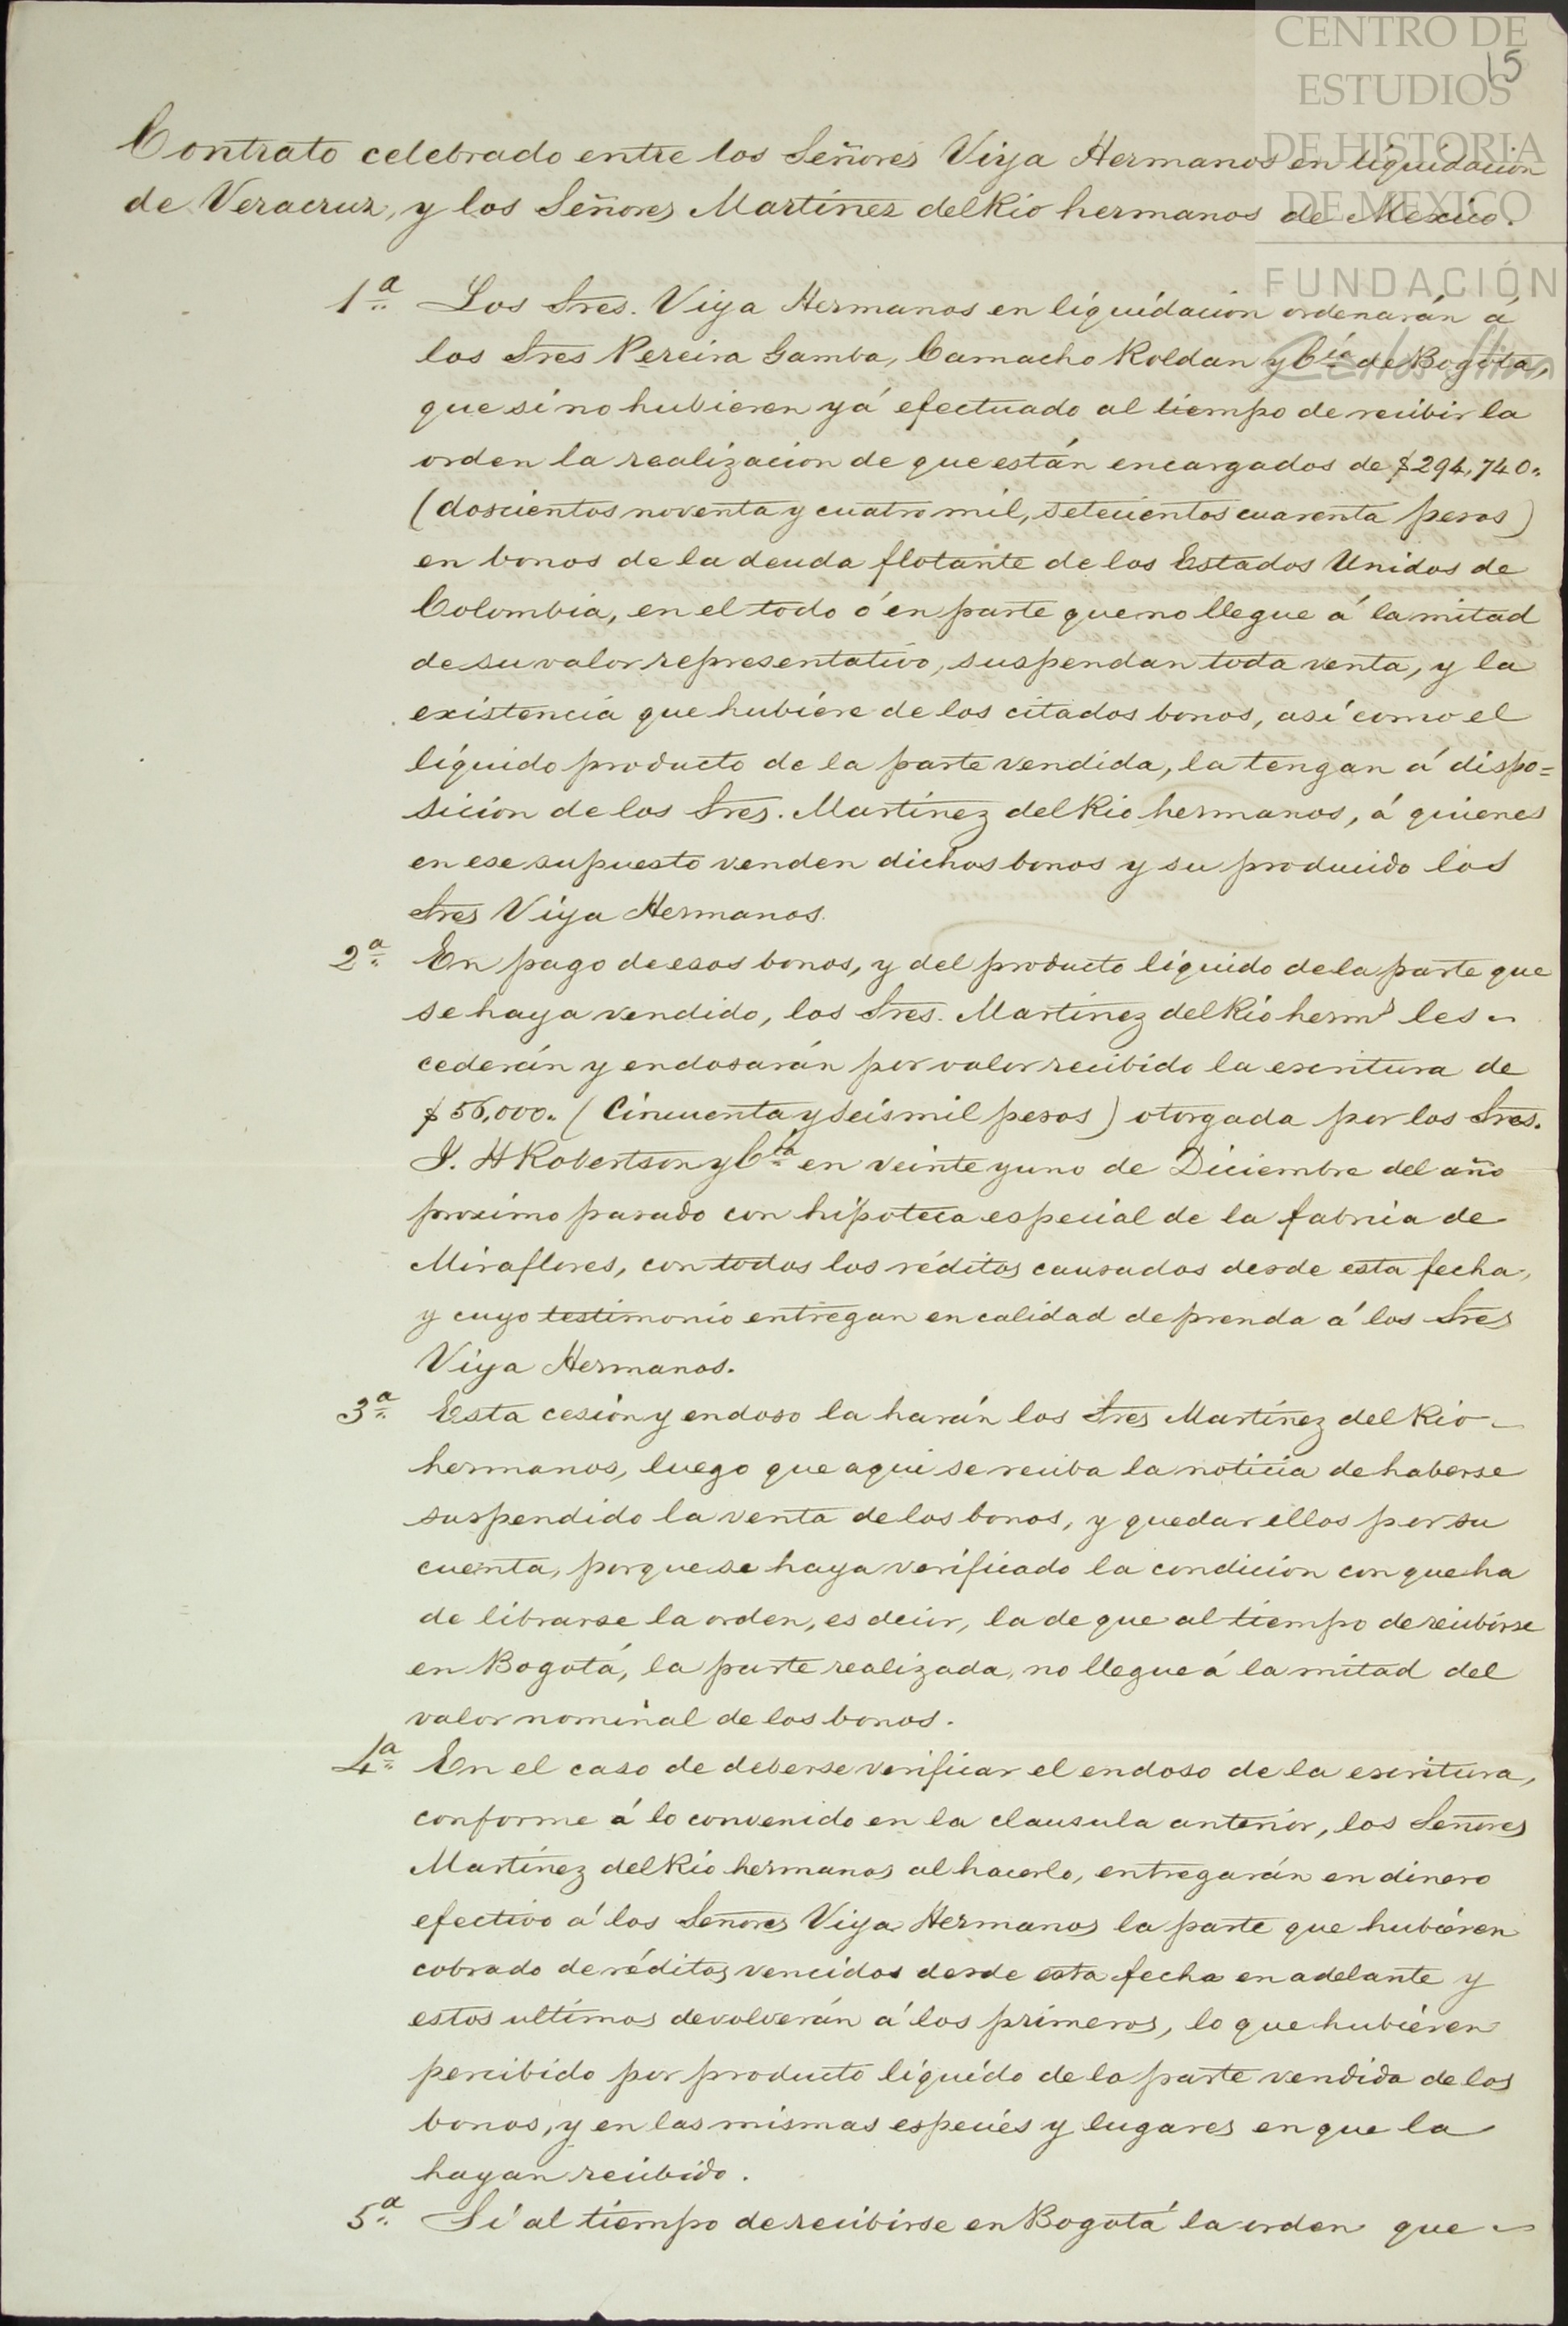 CENTRO DE
15
ESTUDIOS
DE HISTORIA
DE MEXICO
FUNDACIÓN
Carlos Slim
Contrato celebrado entre los Señores Viya Hermanos en liquidacion
de Veracruz, y los Señores Martinez del Rio hermanos de Mexico.
1ª Los Sres. Viya Hermanos en liquidacion ordenarán á
los Sres Pereira Gamba, Camacho Roldan y Cia de Bogotá,
que si no hubieren yá efectuado al tiempo de recibir la
orden la realizacion de que están encargados de $294,740.
(doscientos noventa y cuatro mil, setecientos cuarenta pesos)
en bonos de la deuda flotante de los Estados Unidos de
Colombia, en el todo ó en parte que no llegue á la mitad
de su valor representativo, suspendan toda venta, y la
existencia que hubiére de los citados bonos, asi como el
líquido producto de la parte vendida, la tengan á dispo=
sicion de los Sres. Martínez del Rio hermanos, á quienes
en ese supuesto venden dichos bonos y su producido los
Sres Viya Hermanos.
2ª En pago de esos bonos, y del producto líquido de la parte que
se haya vendido, los Sres. Martínez del Rio herms les
cederán y endosarán por valor recibido la escritura de
$56,000. (Cincuenta y seis mil pesos) otorgada por los Sres.
J. H Robertson y Cia en veinte y uno de Diciembre del año
proximo pasado con hipoteca especial de la fabrica de
Miraflores, con todos los réditos causados desde esta fecha,
y cuyo testimonio entregan en calidad de prenda á los Sres
Viya Hermanos.
3ª Esta cesión y endoso la harán los Sres Martínez del Rio
hermanos, luego que aqui se reciba la noticia de haberse
suspendido la venta de los bonos, y quedar ellos por su
cuenta, porque se haya verificado la condicion con que ha
de librarse la orden, es decir, la de que al tiempo de recibirse
en Bogotá, la parte realizada, no llegue á la mitad del
valor nominal de los bonos.
4ª En el caso de deberse verificar el endoso de la escritura,
conforme á lo convenido en la clausula anterior, los Señores
Martínez del Rio hermanos al hacerlo, entregarán en dinero
efectivo á los Señores Viya Hermanos la parte que hubiéren
cobrado de réditos vencidos desde esta fecha en adelante y
estos ultimos devolverán á los primeros, lo que hubiéren
percibido por producto líquido de la parte vendida de los
bonos, y en las mismas especiés y lugares en que la
hayan recibido.
5ª Si al tiempo de recibirse en Bogotá la orden que